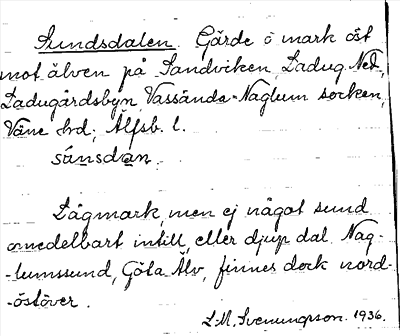 Sundsdalen. Gärde o mark öst
mot älven på Sandviken, Ladug. Ned.,
Ladugårdsbyn, Vassända-Naglum socken,
Väne hd; Älfsb. l.
súnsdan.
Lågmark, men ej något sund
omedelbart intill, eller djup dal. Nag-
-lumssund, Göta Älv, finnes dock nord-
-östöver.
L.M. Svenungsson. 1936.